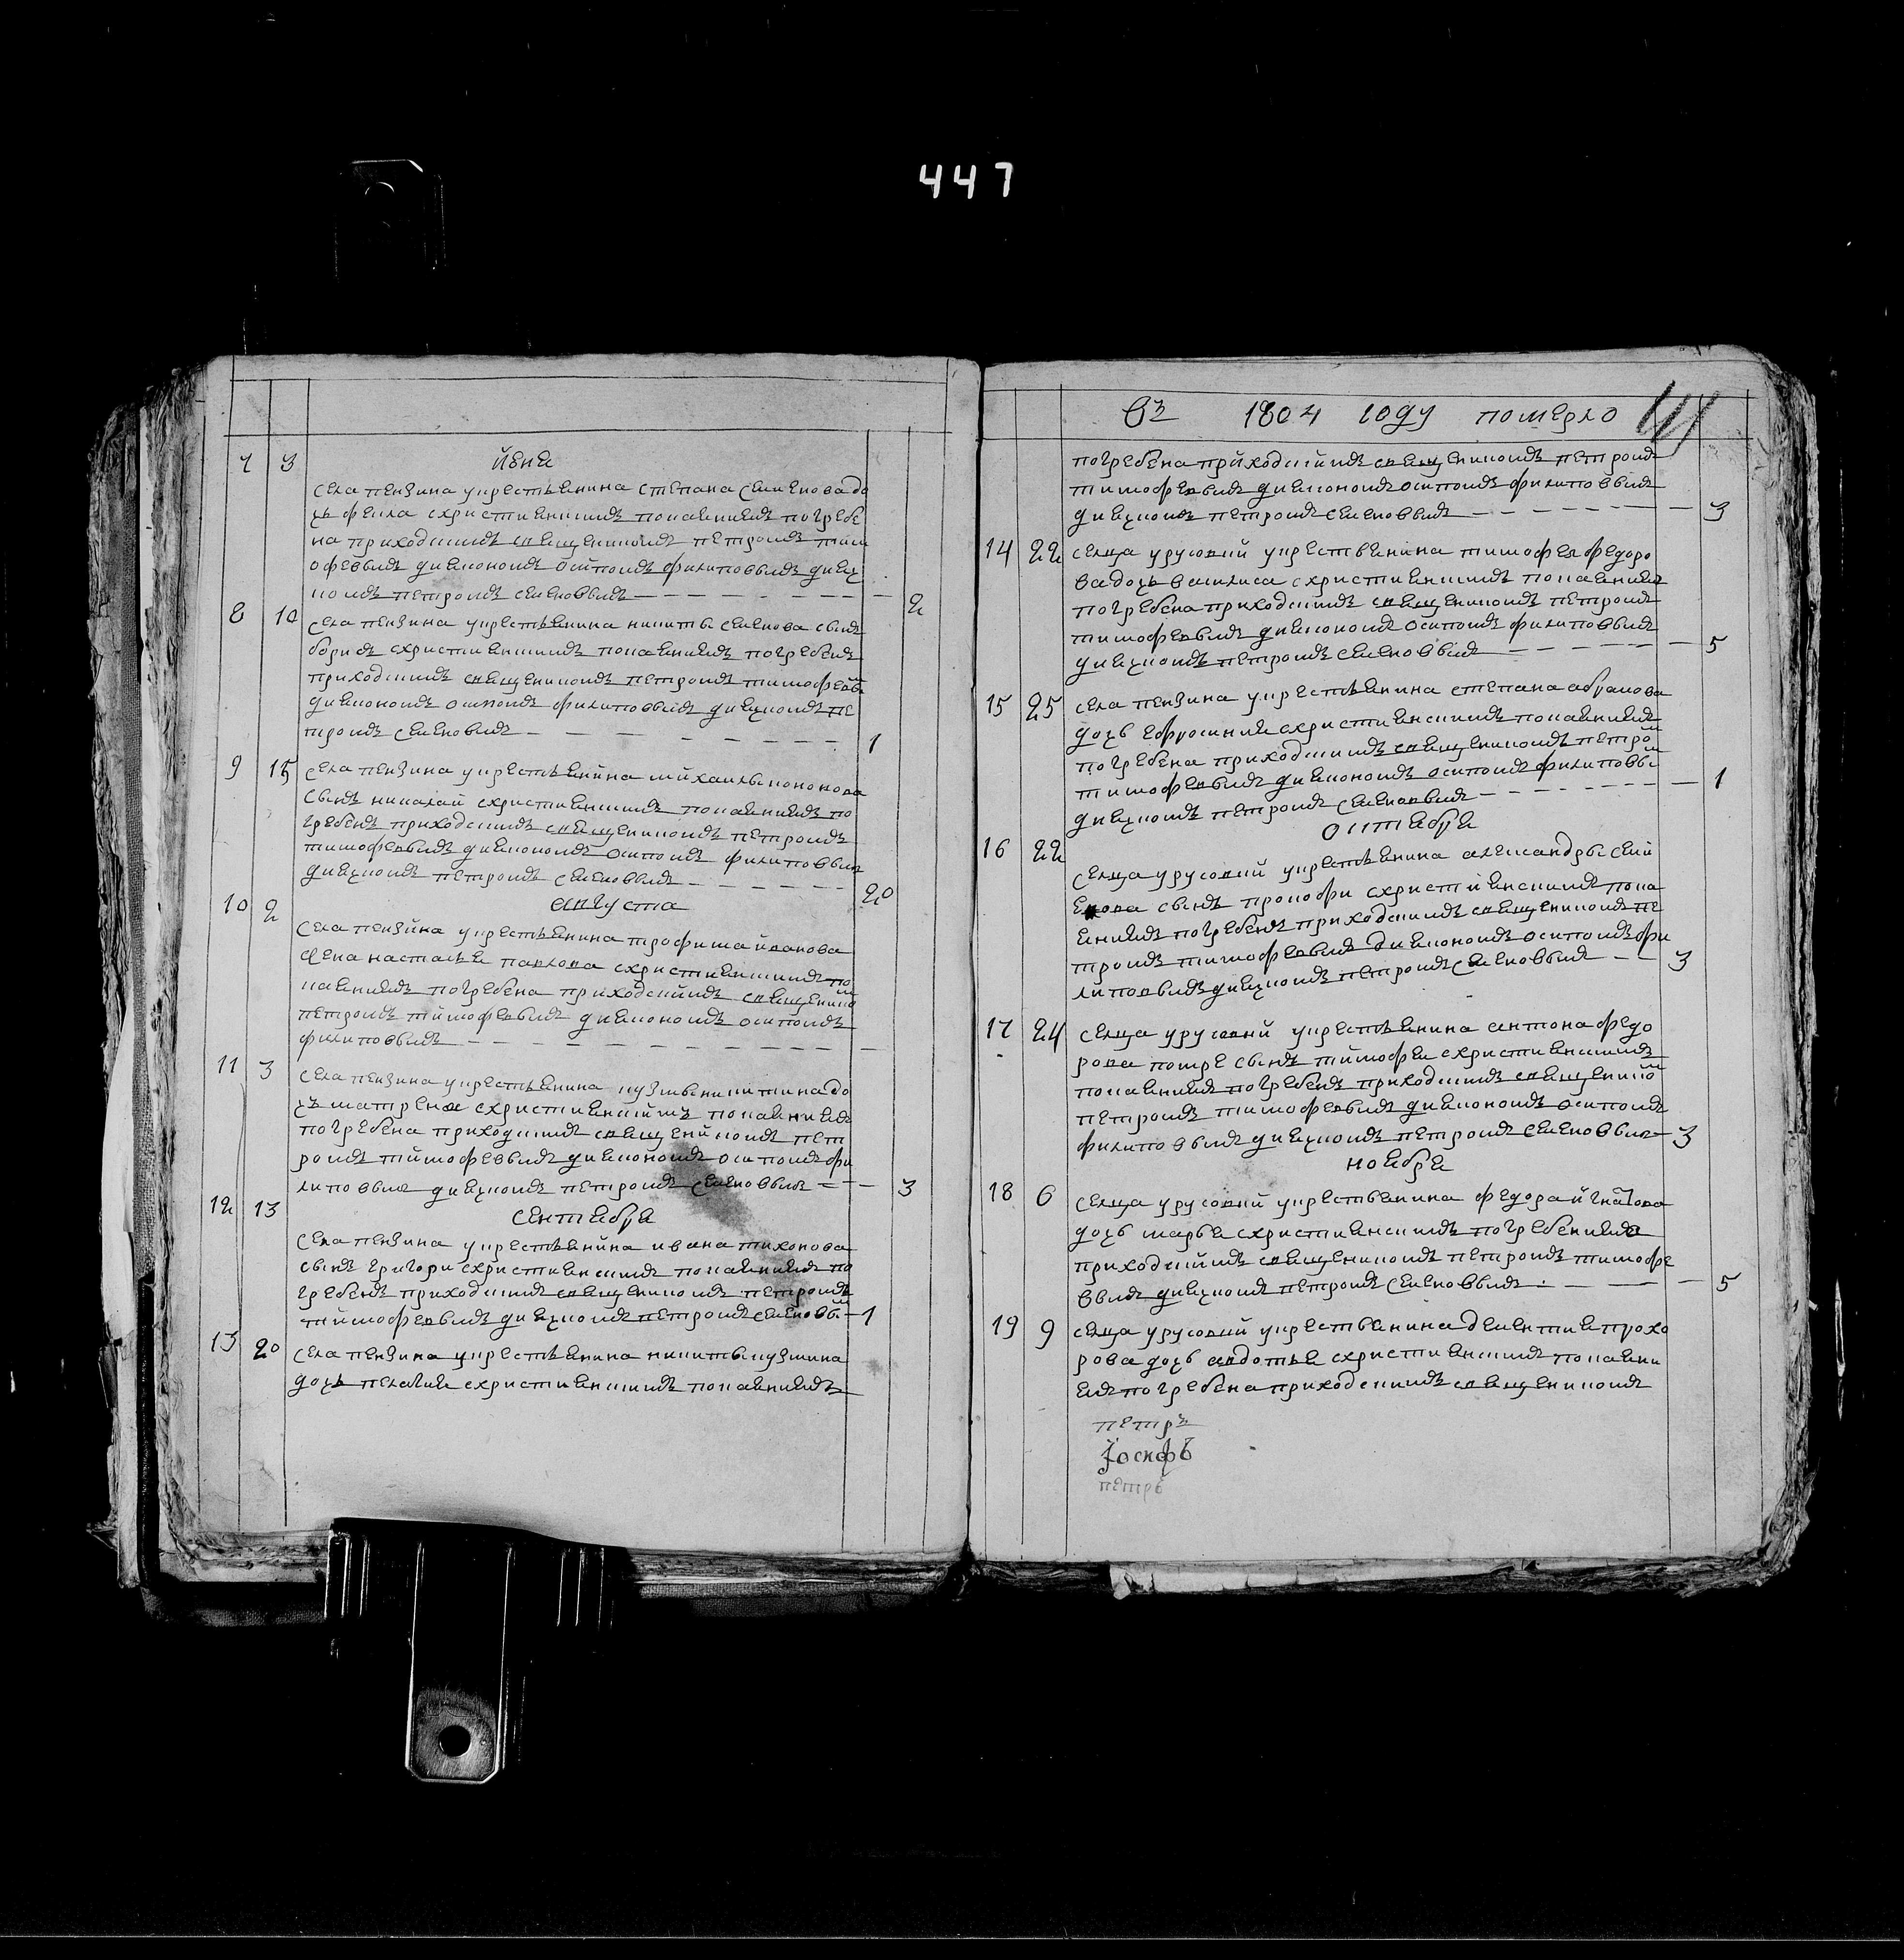 447
7 3 июня
села пензина укрестьянина степана семенова до
чь фекла схристианскимъ покаяниемъ погребе
на приходскимъ священникомъ петромъ тим
офеевымъ диякономъ осипомъ филиповымъ дьяч
комъ петромъ семеновымъ — 2
8 10 села пензина укрестьянина никиты семенова сынъ
борисъ схристианскимъ покаяниемъ погребенъ
приходскимъ священникомъ петромъ тимофеевы
диякономъ осипомъ филиповымъ дьячкомъ пе
тромъ семеновымъ — 1
9 15 села пензина укрестьянина михаилы кононова
сынъ николай схристианскимъ покаяниемъ по
гребенъ приходскимъ священникомъ петромъ
тимофеевымъ диякономъ осипомъ филиповымъ
дьячкомъ петромъ семеновымъ — 20
10 2 августа
села пензина укрестьянина трофима иванова
жена настасья павлова схристианскимъ по
каяниемъ погребена приходскимъ священнико
петромъ тимофеевымъ диякономъ осипомъ
филиповымъ —
11 3 села пензина укрестьянина кузмы никитина до
чъ матрена схристианскимъ покаяниемъ
погребена приходскимъ священникомъ пет
ромъ тимофеевымъ диякономъ осипомъ фи
липовымъ дьячкомъ петромъ семеновымъ — 3
12 13 сентября
села пензина укрестьянина ивана тихонова
сынъ григори схристианскимъ покаяниемъ по
гребенъ приходскимъ священникомъ петромъ
тимофеевымъ дьячкомъ петромъ семеновы — 1
13 20 села пензина укрестьянина никиты кузмина
дочь пелагия схристианскимъ покаяниемъ
въ 1804 году померло
погребена приходскимъ священникомъ петромъ
тимофеевымъ диякономъ осипомъ филиповымъ
дьячкомъ петромъ семеновымъ — 3
14 22 селца урусовки укрестьянина тимофея федоро
ва дочь василиса схристианскимъ покаянием
погребена приходскимъ священникомъ петромъ
тимофеевымъ диякономъ осипомъ филиповымъ
дьячкомъ петромъ семеновымъ — 5
15 25 села пензина укрестьянина степана абрамова
дочь ефросиния схристианскимъ покаяниемъ
погребена приходскимъ священникомъ петро
тимофеевымъ диякономъ осипомъ филиповы
дьячкомъ петромъ семеновымъ — 1
октября
16 22 селца урусовки укрестьянина александры семи
енова сынъ прокофи схристианскимъ пока
яниемъ погребенъ приходскимъ священникомъ пе
тромъ тимофеевымъ диякономъ осипомъ фи
липовымъ дьячкомъ петромъ семеновымъ — 3
17 24 селца урусовки укрестьянина антона федо
рова сынъ тимофеи схристианскимъ
покаяниемъ погребенъ приходскимъ священнико
петромъ тимофеевымъ диякономъ осипомъ
филиповымъ дьячкомъ петромъ семеновым — 3
ноября
18 6 селца урусовки укрестьянина федора игнатова
дочь марья схристианскимъ погребениемъ
приходскимъ священникомъ петромъ тимофе
евымъ дьячкомъ петромъ семеновымъ — 5
19 9 селца урусовки укрестьянина дементия прохо
рова дочь авдотья схристианскимъ покаяни
емъ погребена приходскимъ священникомъ
петръ
Іосифъ
петръ